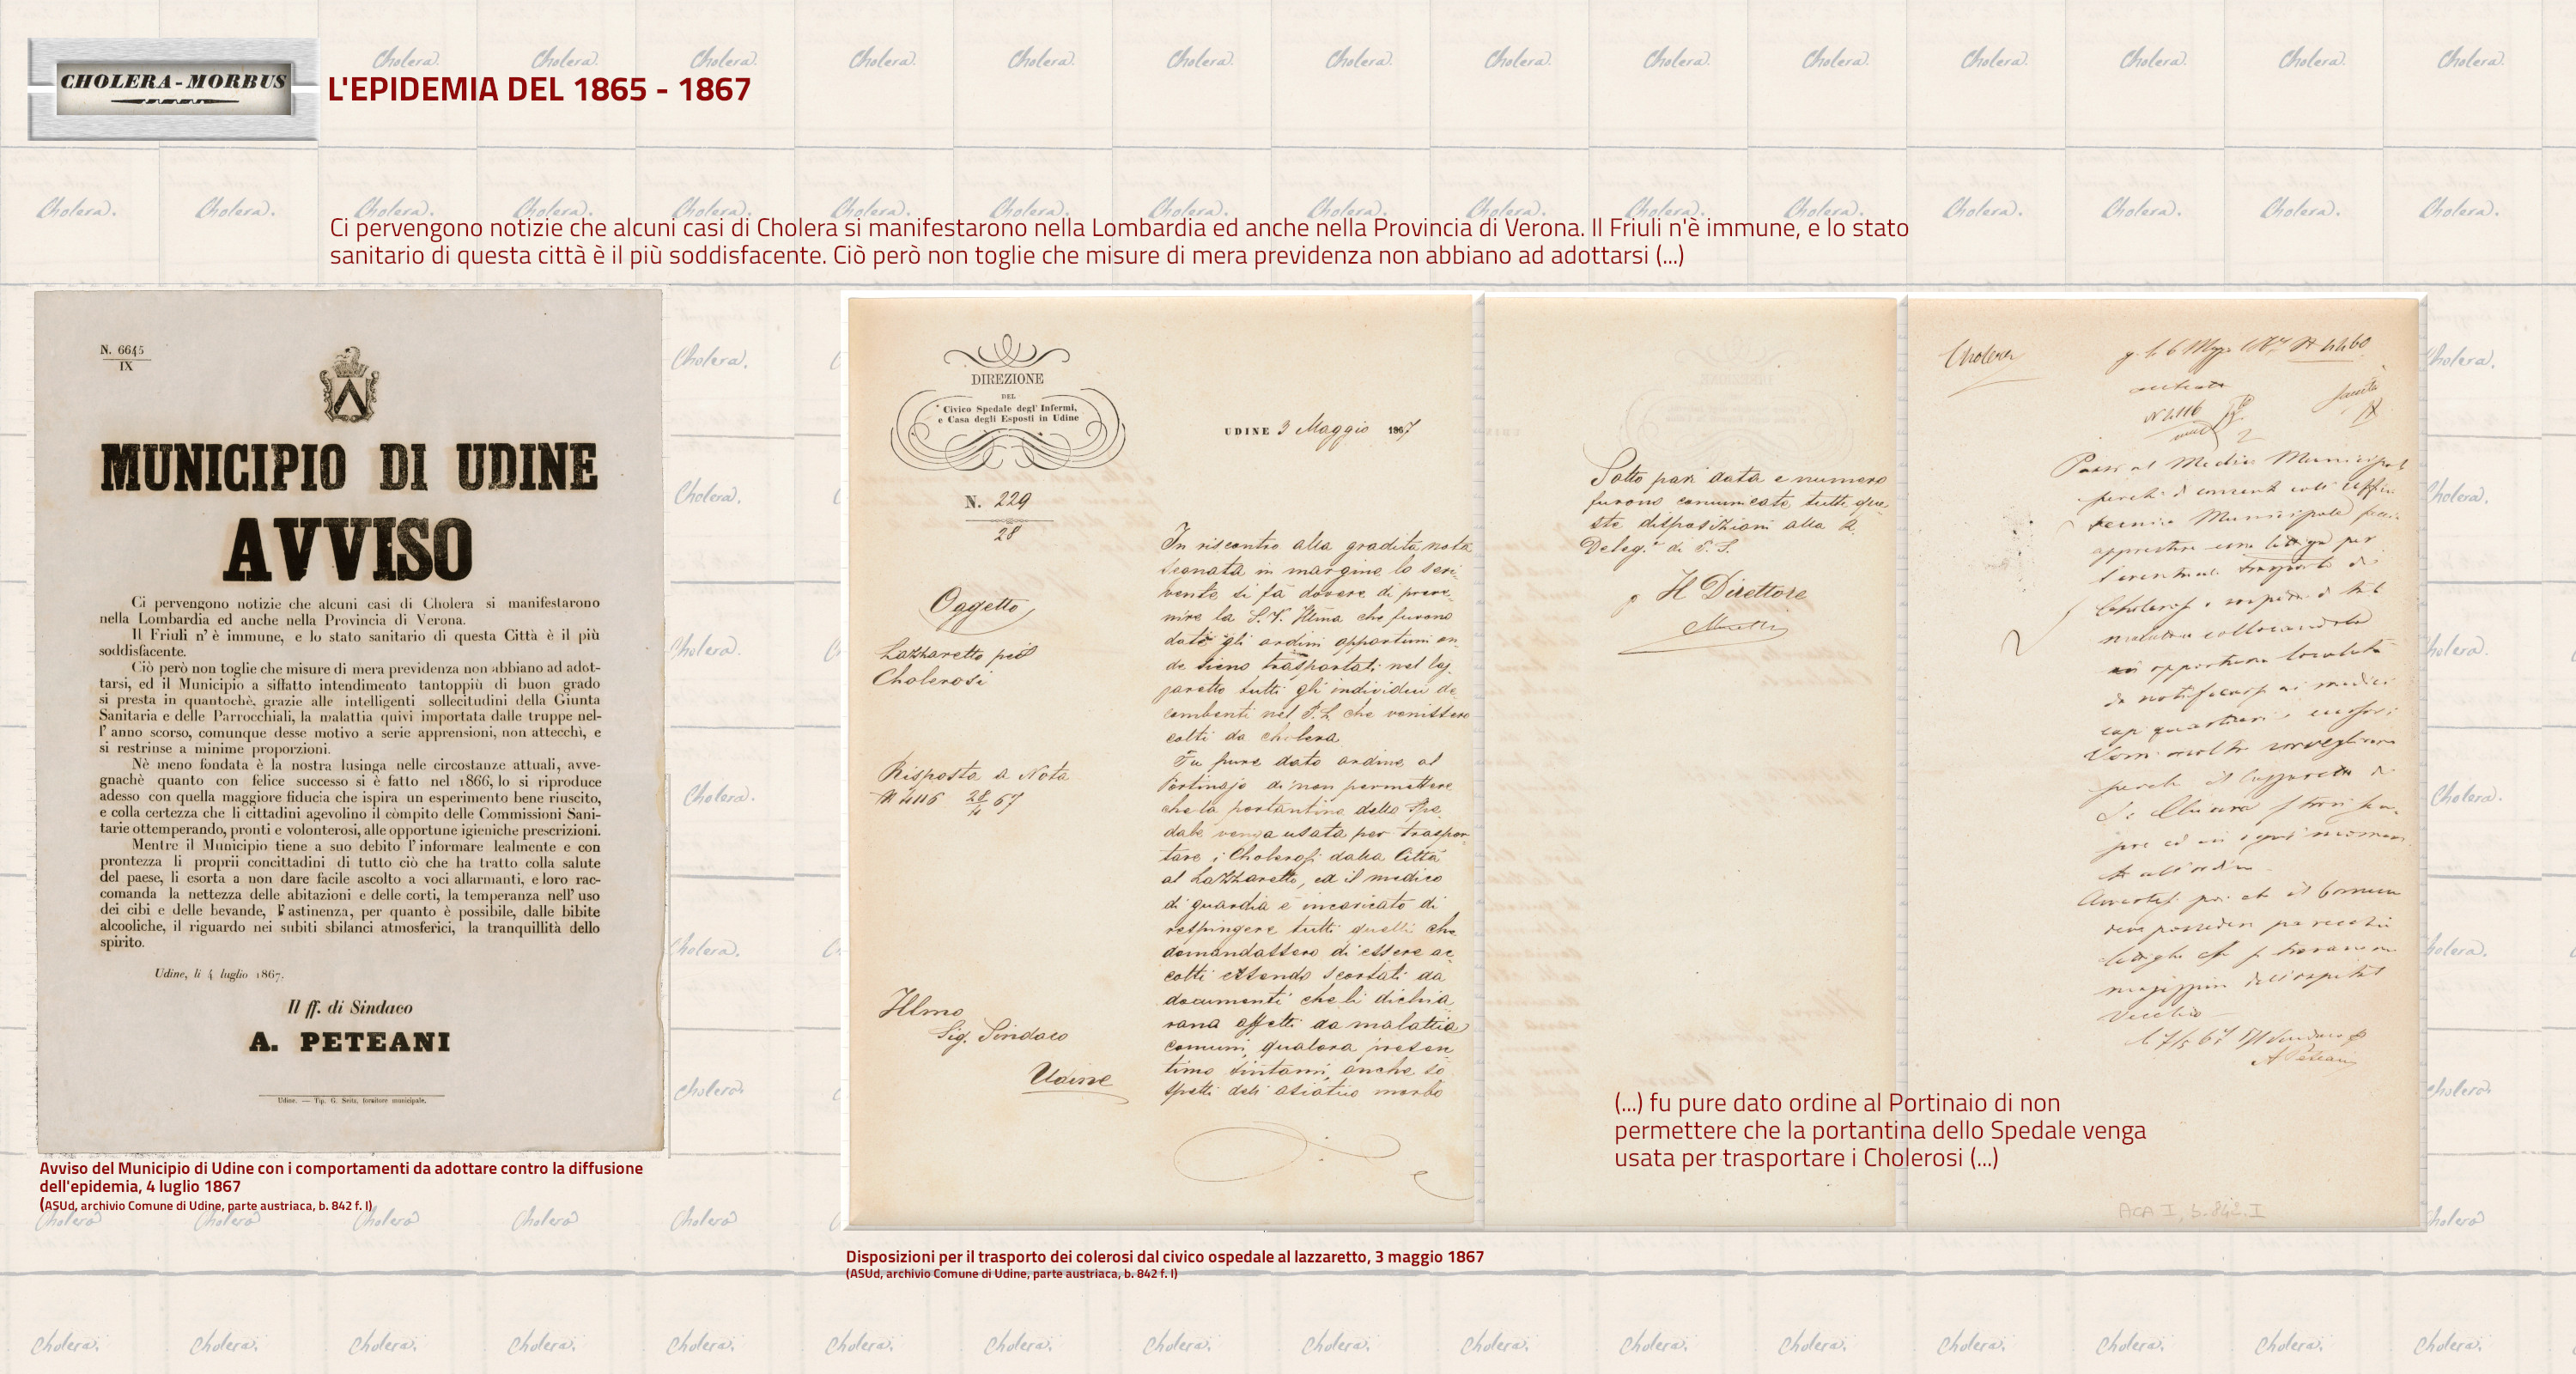 CHOLERA-MORBUS
L'EPIDEMIA DEL 1865 - 1867
Ci pervengono notizie che alcuni casi di Cholera si manifestarono nella Lombardia ed anche nella Provincia di Verona. Il Friuli n'è immune, e lo stato
sanitario di questa città è il più soddisfacente. Ciò però non toglie che misure di mera previdenza non abbiano ad adottarsi (...)
N. 6645
IX
MUNICIPIO DI UDINE
AVVISO
Ci pervengono notizie che alcuni casi di Cholera si manifestarono
nella Lombardia ed anche nella Provincia di Verona.
Il Friuli n'è immune, e lo stato sanitario di questa Città è il più
soddisfacente.
Ciò però non toglie che misure di mera previdenza non abbiano ad adot-
tarsi, ed il Municipio a siffatto intendimento tantoppiù di buon grado
si presta in quantochè, grazie alle intelligenti sollecitudini della Giunta
Sanitaria e delle Parrocchiali, la malattia quivi importata dalle truppe nel-
l'anno scorso, comunque desse motivo a serie apprensioni, non attecchì, e
si restrinse a minime proporzioni.
Nè meno fondata è la nostra lusinga nelle circostanze attuali, avve-
gnachè quanto con felice successo si è fatto nel 1866, lo si riproduce
adesso con quella maggiore fiducia che ispira un esperimento bene riuscito,
e colla certezza che li cittadini agevolino il còmpito delle Commissioni Sani-
tarie ottemperando, pronti e volonterosi, alle opportune igieniche prescrizioni.
Mentre il Municipio tiene a suo debito l'informare lealmente e con
prontezza li proprii concittadini di tutto ciò che ha tratto colla salute
del paese, li esorta a non dare facile ascolto a voci allarmanti, e loro rac-
comanda la nettezza delle abitazioni e delle corti, la temperanza nell'uso
dei cibi e delle bevande, l'astinenza, per quanto è possibile, dalle bibite
alcooliche, il riguardo nei subiti sbilanci atmosferici, la tranquillità dello
spirito.
Udine, li 4 luglio 1867.
Il ff. di Sindaco
A. PETEANI
Udine. — Tip. G. Seitz, fornitore municipale.
Avviso del Municipio di Udine con i comportamenti da adottare contro la diffusione
dell'epidemia, 4 luglio 1867
(ASUd, archivio Comune di Udine, parte austriaca, b. 842 f. I)
DIREZIONE
DEL
Civico Spedale degl' Infermi,
e Casa degli Esposti in Udine
UDINE 3 Maggio 1867
N. 229
28
Oggetto
Lazzaretto pei
Cholerosi
Risposta a Nota
N 4116 28/4 67
Illmo
Sig. Sindaco
Udine
In riscontro alla gradita nota
segnata in margine lo scri-
vente si fà dovere di preve-
nire la S.V. Illma che furono
dati gli ordini opportuni on-
de sieno trasportati nel laz-
zaretto tutti gli individui de-
combenti nel P.L. che venissero
colti da cholera
Fu pure dato ordine al
Portinajo di non permettere
che la portantina dello Spe-
dale venga usata per traspor-
tare i Cholerosi dalla Città
al Lazzaretto, ed il medico
di guardia è incaricato di
respingere tutti quelli che
domandassero di essere ac-
colti essendo scortati da
documenti che li dichia-
rano affetti da malattia
comuni, qualora presen-
tino sintomi, anche so-
spetti dell' asiatico morbo
Sotto pari data e numero
furono comunicate tutte que-
ste disposizioni alla R.
Deleg.e di P.S.
Il Direttore
Cholera
4460
N 4116
Passi al Medico Municipale
perchè di concerti coll'Uffizio
tecnico Municipale
apprestare una lettiga per
l'eventuale trasporto di
Cholerosi
malattia collocandola
in opportuna località
da notificarsi ai medici
perchè il lazzaretto di
vecchio
A Peteani
ACA I, b. 842. I
(...) fu pure dato ordine al Portinaio di non
permettere che la portantina dello Spedale venga
usata per trasportare i Cholerosi (...)
Disposizioni per il trasporto dei colerosi dal civico ospedale al lazzaretto, 3 maggio 1867
(ASUd, archivio Comune di Udine, parte austriaca, b. 842 f. I)